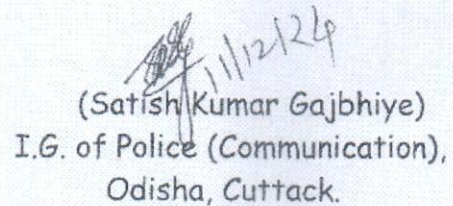 11/12/24
(Satish Kumar Gajbhiye)
I.G. of Police (Communication),
Odisha, Cuttack.